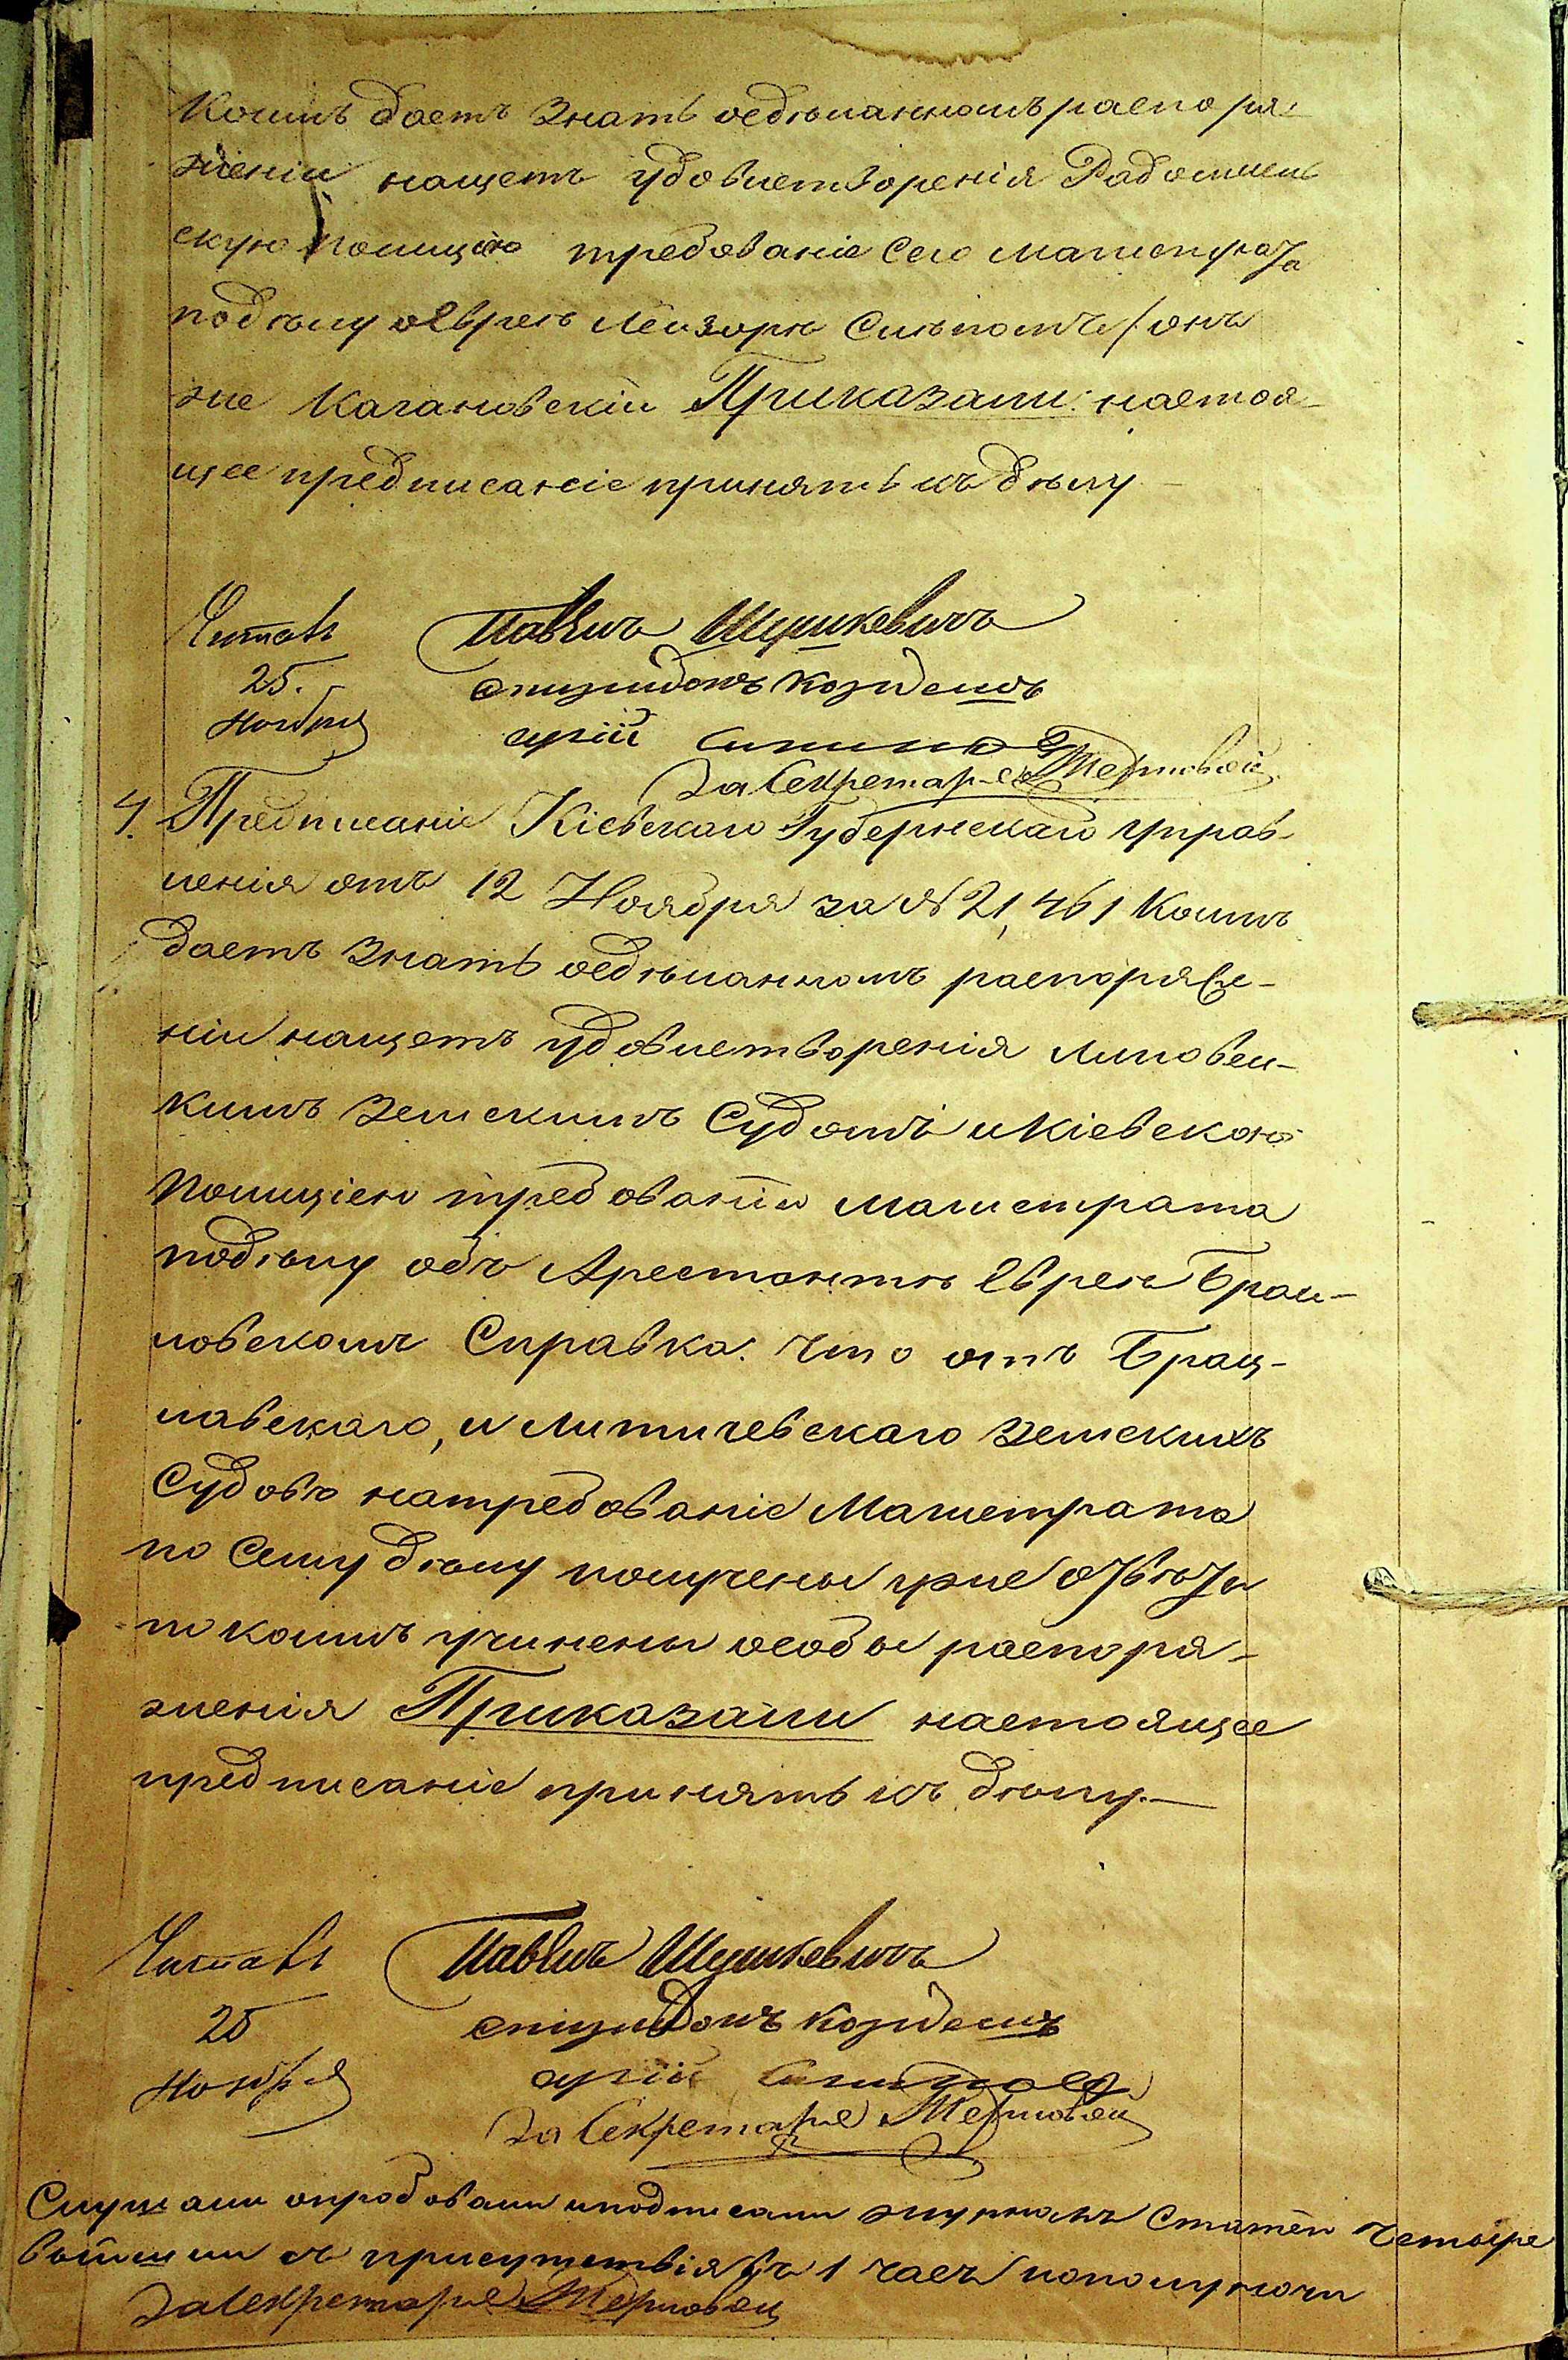 Коимъ даетъ знать осдѣланномъ распоря-
женіи нащетъ удовлетворенія Радомысль
скую Полицію требованіе сего магистрата
подѣлу оЕвреѣ Лейзорѣ онъ
же Кагановскій Приказали: настоя-
щее предписаніе принять къ дѣлу
Читалъ Шушкевичъ
25. Козидемъ
Ноября
За Секретаря Терновой
4. Предписаніе Кіевскаго Губернскаго Управ-
ленія отъ 12 Ноября за № 21,461 Коимъ
даетъ знать осдѣланномъ распоряже-
ніи нащетъ удовлетворенія Липовец-
кимъ Земскимъ Судомъ и Кіевскою
Полиціею требованіи магистрата
подѣлу объ Арестантѣ Евреѣ Браи-
ловскомъ Справка. Что отъ Брац-
лавскаго, и Литичевскаго Земскихъ
Судовъ натребованіе Магистрата
по Сему дѣлу получены уже отвѣты
по коимъ учинены особы распоря-
женія Приказали настоящее
предписаніе принять къ дѣлу.—
Читалъ Шушкевичъ
25 Козидемъ
Ноября
За Секретаря Терновой
Слушали опробовали иподписали журналъ Статей четыре
вышли съ присутствія въ 1 часъ пополуночи
За Секретаря Терновой